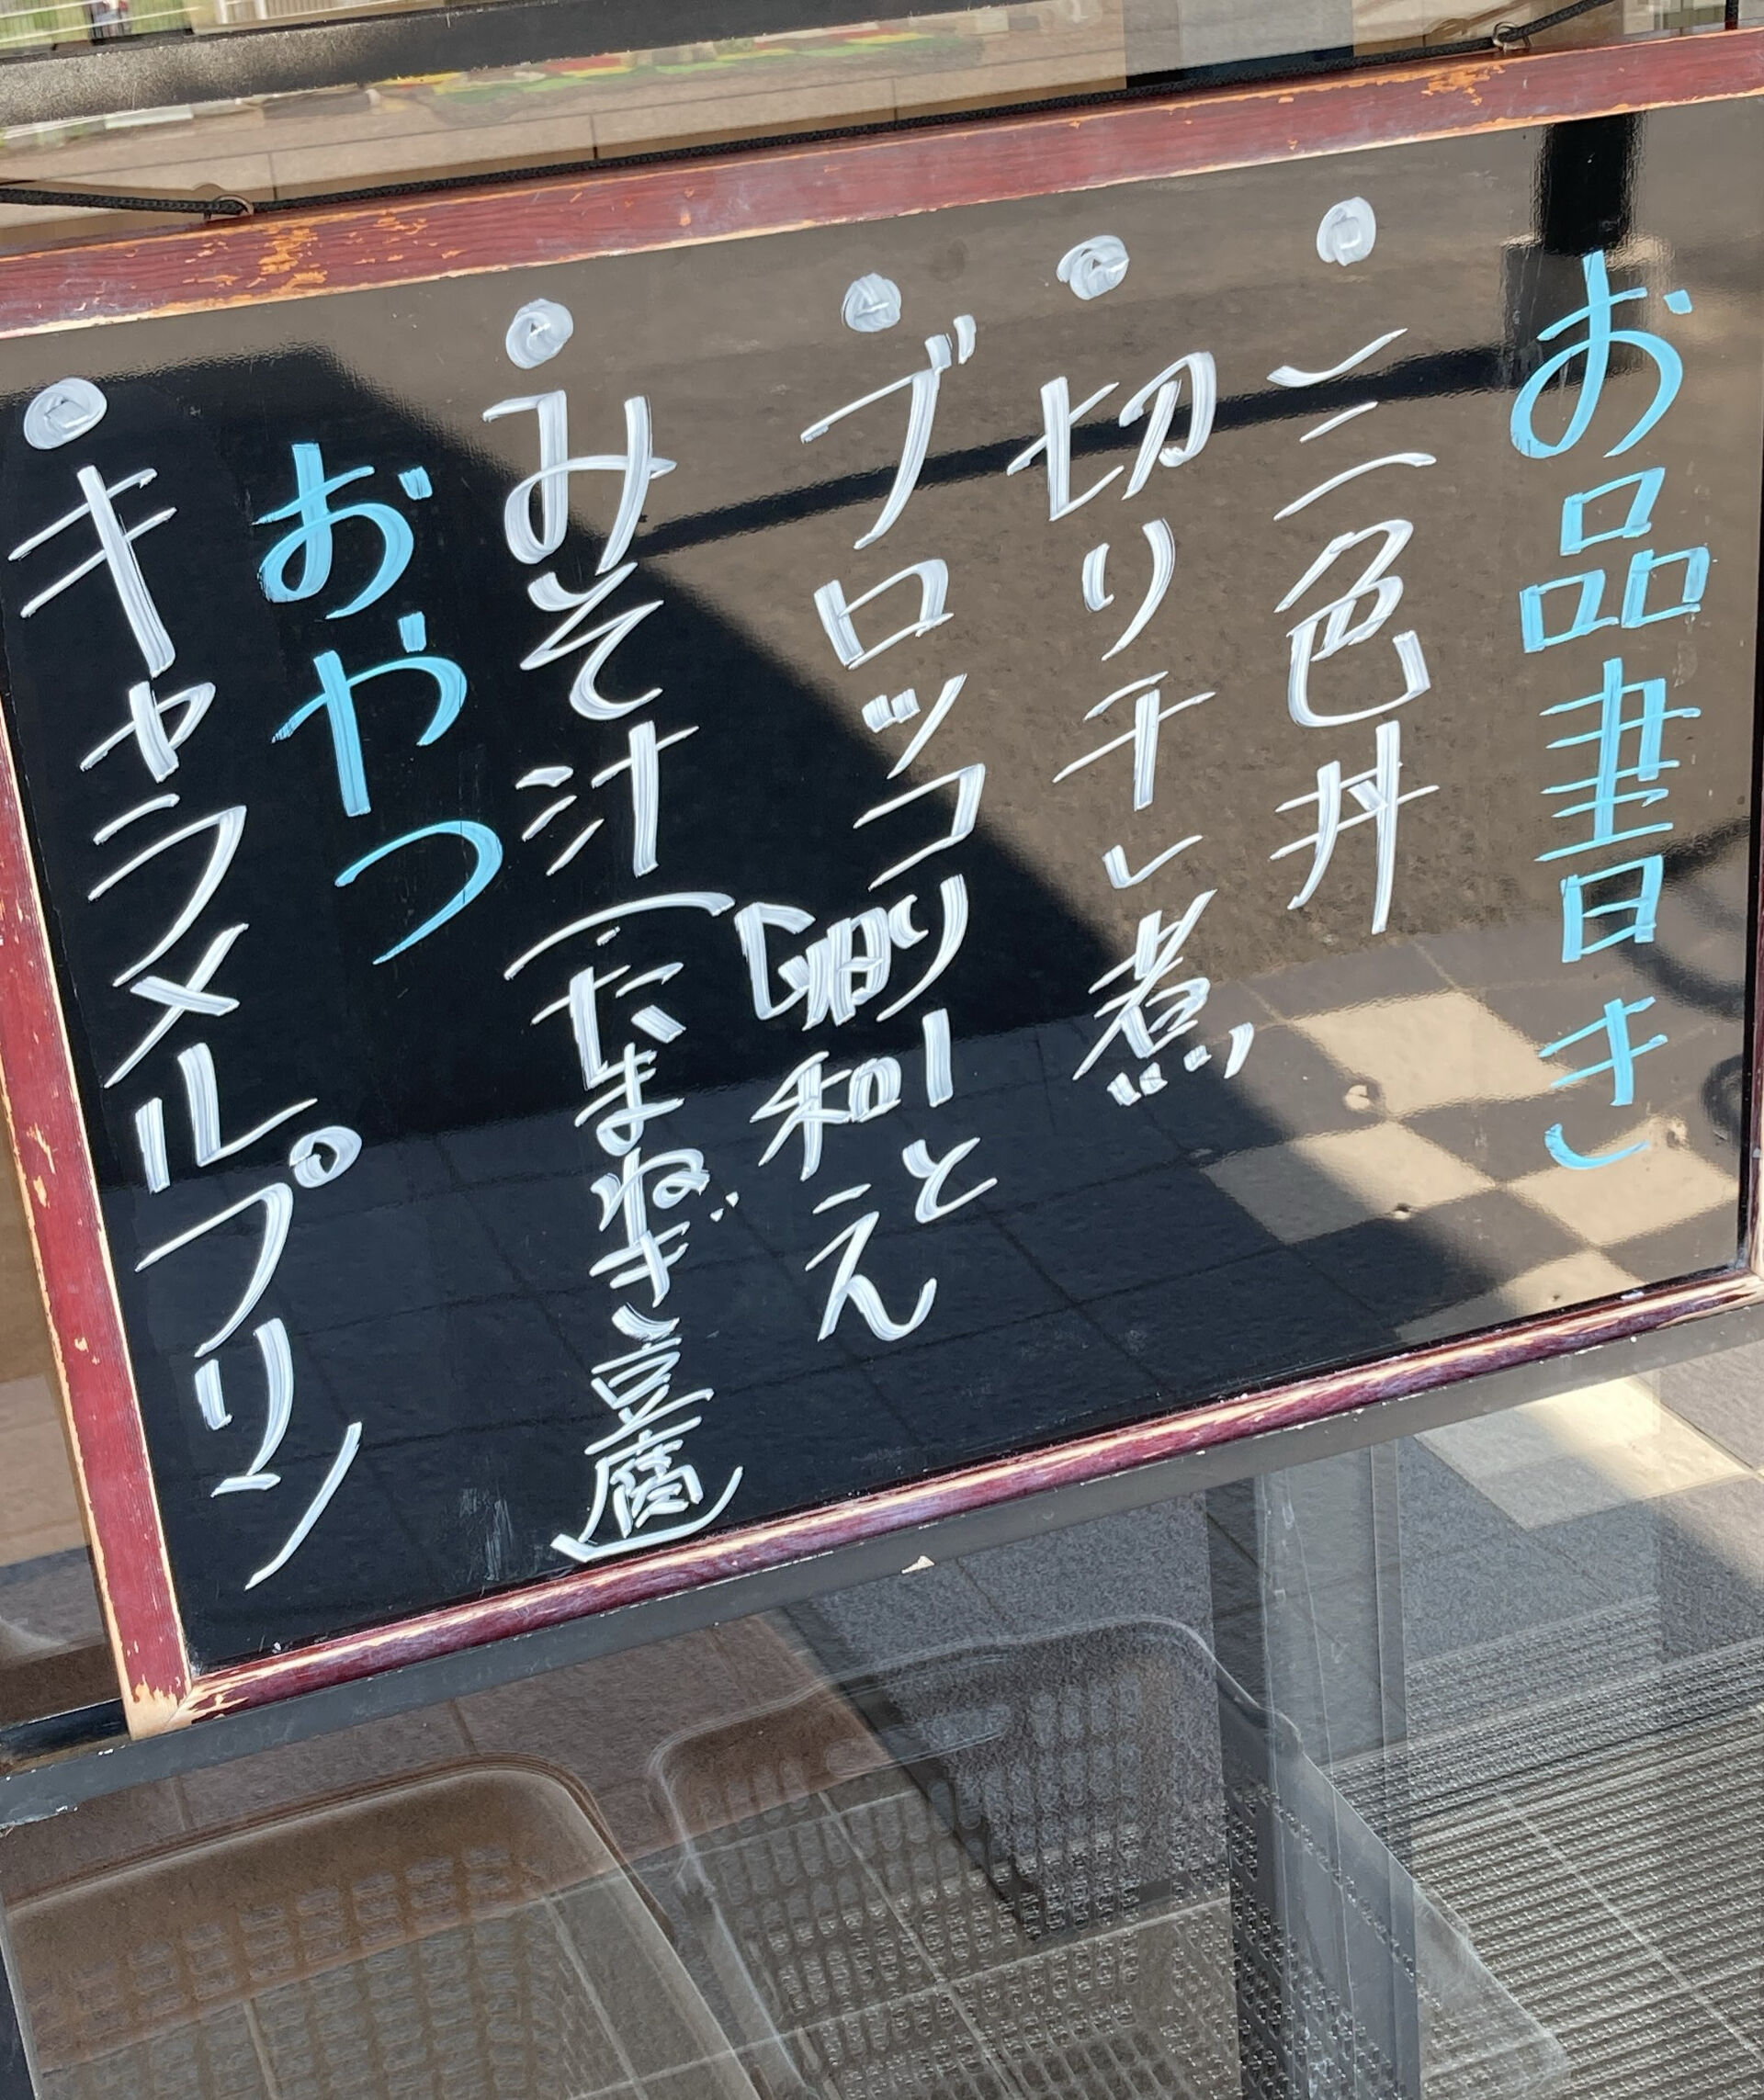 お品書き
三色丼
切り干し煮
ブロッコリーと
和え
みそ汁(たまねぎ、豆腐)
おやつ
キャラメルプリン